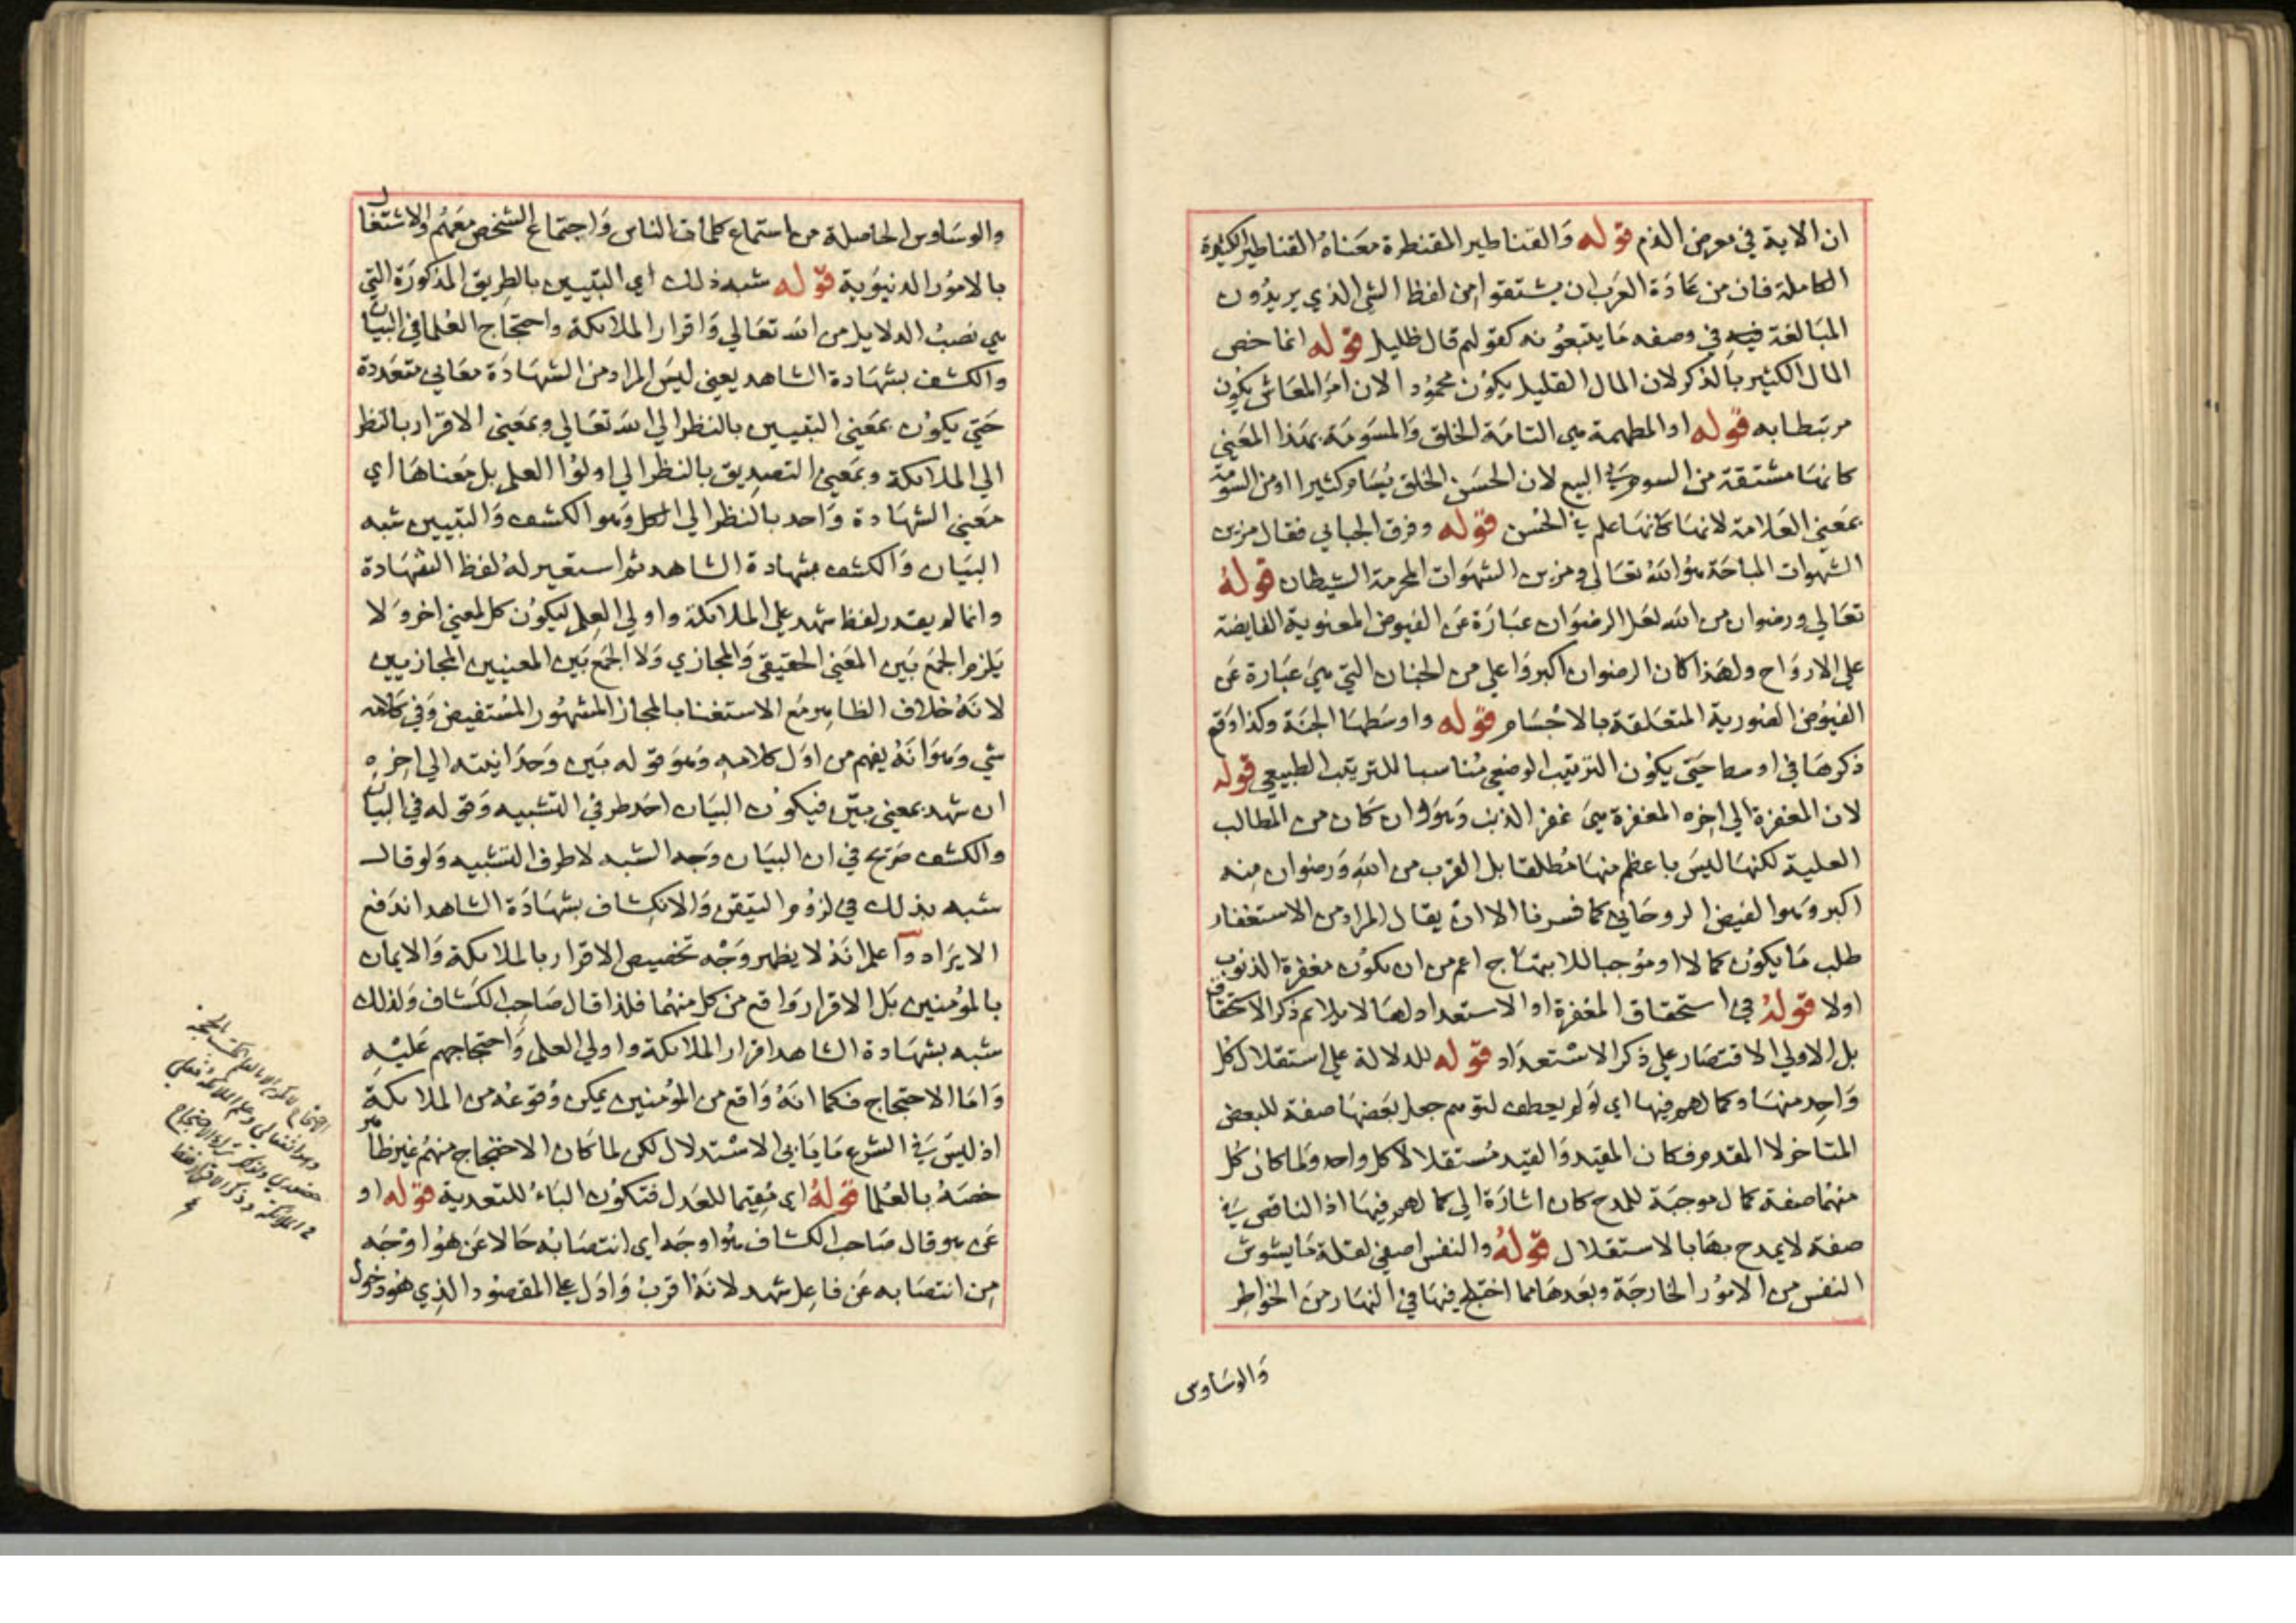 ان الاية في معرض الذم قوله والقناطير المقنطرة معناه القناطير الكثيرة
الكاملة فان من عادة العرب ان يشتقوا من لفظ الشي الذي يريدون
المبالغة فيه في وصفه ما يتبعونه كقولهم قال ظليل قوله انما خص
المال الكثير بالذكر لان المال القليل يكون محمودا لان امر المعاش يكون
مرتبطا به قوله او المطهمة هي التامة الخلق والمسومة بهذا المعني
كانها مشتقة من السوم في البيع لان الحسن الخلق يسام كثيرا او من السومة
بمعني العلامة لانها كانها علم في الحسن قوله وفرق الجبائي فقال مزين
الشهوات المباحة هو الله تعالي ومزين الشهوات المحرمة الشيطان قوله
تعالي ورضوان من الله لعل الرضوان عبارة عن الفيوض المعنوية الفايضة
علي الارواح ولهذا كان الرضوان اكبر واعلي من الجنان التي هي عبارة عن
الفيوض الصورية المتعلقة بالاجسام قوله واوسطها الجنة وكذا وقع
ذكرها في اوسط حتي يكون الترتيب الوضعي مناسبا للترتيب الطبيعي قوله
لان المغفرة الي اخره المغفرة هي غفر الذنب وهو وان كان من المطالب
العلية لكنها ليس باعظم منها مطلقا بل القرب من الله ورضوان منه
اكبر وهو الفيض الروحاني كما فسرنا الا ان يقال المراد من الاستغفار
طلب ما يكون كمالا او موجبا للابتهاج اعم من ان يكون مغفرة الذنوب
اولا قوله في استحقاق المغفرة او الاستعداد لها لا يلايم ذكر الاستحقاق
بل الاولي الاقتصار علي ذكر الاستعداد قوله للدلالة علي استقلال كل
واحد منها وكمالهم فيها اي لو لم يعطف لتوهم جعل بعضها صفة للبعض
المتاخر لا المقدم فكان المقيد والقيد مستقلا لا كل واحد ولما كان كل
منهما صفة كمال موجبة للمدح كان اشارة الي كمالهم فيها اذ الناقص في
صفة لا يمدح بها بالاستقلال قوله والنفس اصفي لقلة ما يشوش
النفس من الامور الخارجة وبعدها مما اختلج فيها في النهار من الخواطر
والوساوس
والوساوس الحاصلة من استماع كلمات الناس واجتماع الشخص معهم والاشتغال
بالامور الدنيوية قوله شبه ذلك اي التبيين بالطريق المذكورة التي
هي نصب الدلايل من الله تعالي واقرار الملائكة واحتجاج العلما في البيان
والكشف بشهادة الشاهد يعني ليس المراد من الشهادة معاني متعددة
حتي يكون بمعني التبيين بالنظر الي الله تعالي وبمعني الاقرار بالنظر
الي الملائكة وبمعني التصديق بالنظر الي اولوا العلم بل معناها اي
معني الشهادة واحد بالنظر الي الكل وهو الكشف والتبيين شبه
البيان والكشف بشهادة الشاهد ثم استعير له لفظ الشهادة
وانما لم يقدر لفظ شهد علي الملائكة واولي العلم ليكون كل لمعني اخر ولا
يلزم الجمع بين المعني الحقيقي والمجازي ولا الجمع بين المعنيين المجازيين
لانه خلاف الظاهر مع الاستغنا بالمجاز المشهور المستفيض وفي كلامه
شي وهو انه يفهم من اول كلامه وهو قوله بين وحدانيته الي اخره
ان شهد بمعني بين فيكون البيان احد طرفي التشبيه وقوله في البيان
والكشف صريح في ان البيان وجه الشبه لا طرف التشبيه ولو قال
شبه بذلك في لزوم التيقن والانكشاف بشهادة الشاهد اندفع
الايراد واعلم انه لا يظهر وجه تخصيص الاقرار بالملائكة والايمان
بالمؤمنين بل الاقرار واقع من كل منهما فلذا قال صاحب الكشاف وكذلك
شبه بشهادة الشاهد اقرار الملائكة واولي العلم واحتجاجهم عليه
واما الاحتجاج فكما انه واقع من المؤمنين يمكن وقوعه من الملائكة
اذ ليس في الشرع ما يابي الاستدلال لكن لما كان الاحتجاج منهم غير ظاهر
خصه بالعلما قوله اي مقيما للعدل فتكون الباء للتعدية قوله او
عن هو قال صاحب الكشاف هو اوجه اي انتصابه حالا عن هو اوجه
من انتصابه عن فاعل شهد لانه اقرب وادل علي المقصود الذي هو دخول